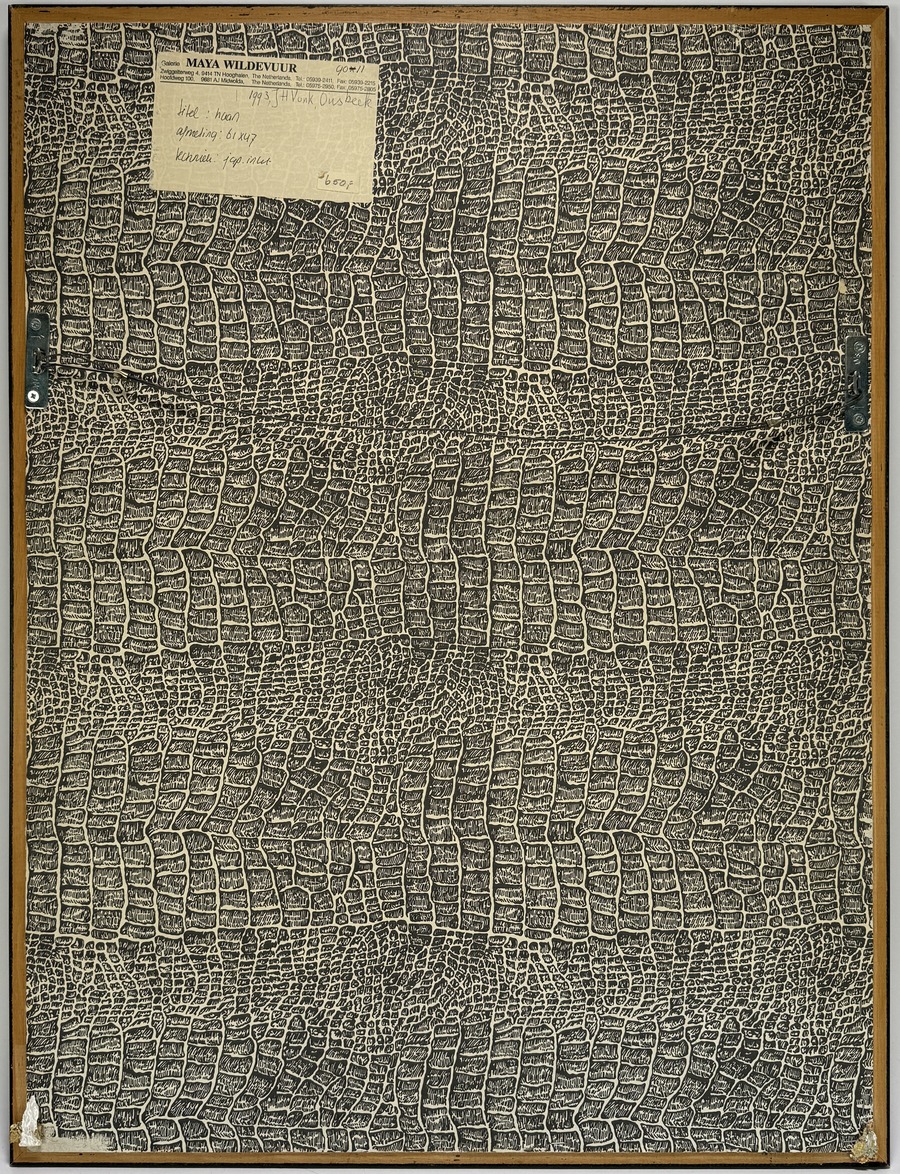 Galerie MAYA WILDEVUUR
Zwiggelterweg 4, 9414 TN Hooghalen, The Netherlands. Tel.: 05939-2411, Fax: 05939-2215
Hoofdweg 100, 9681 AJ Midwolda, The Netherlands. Tel.: 05975-2950, Fax: 05975-2805
1993, JH Vonk,
titel : haan
afmeting: 61x47
techniek: jap. inkt
650,-